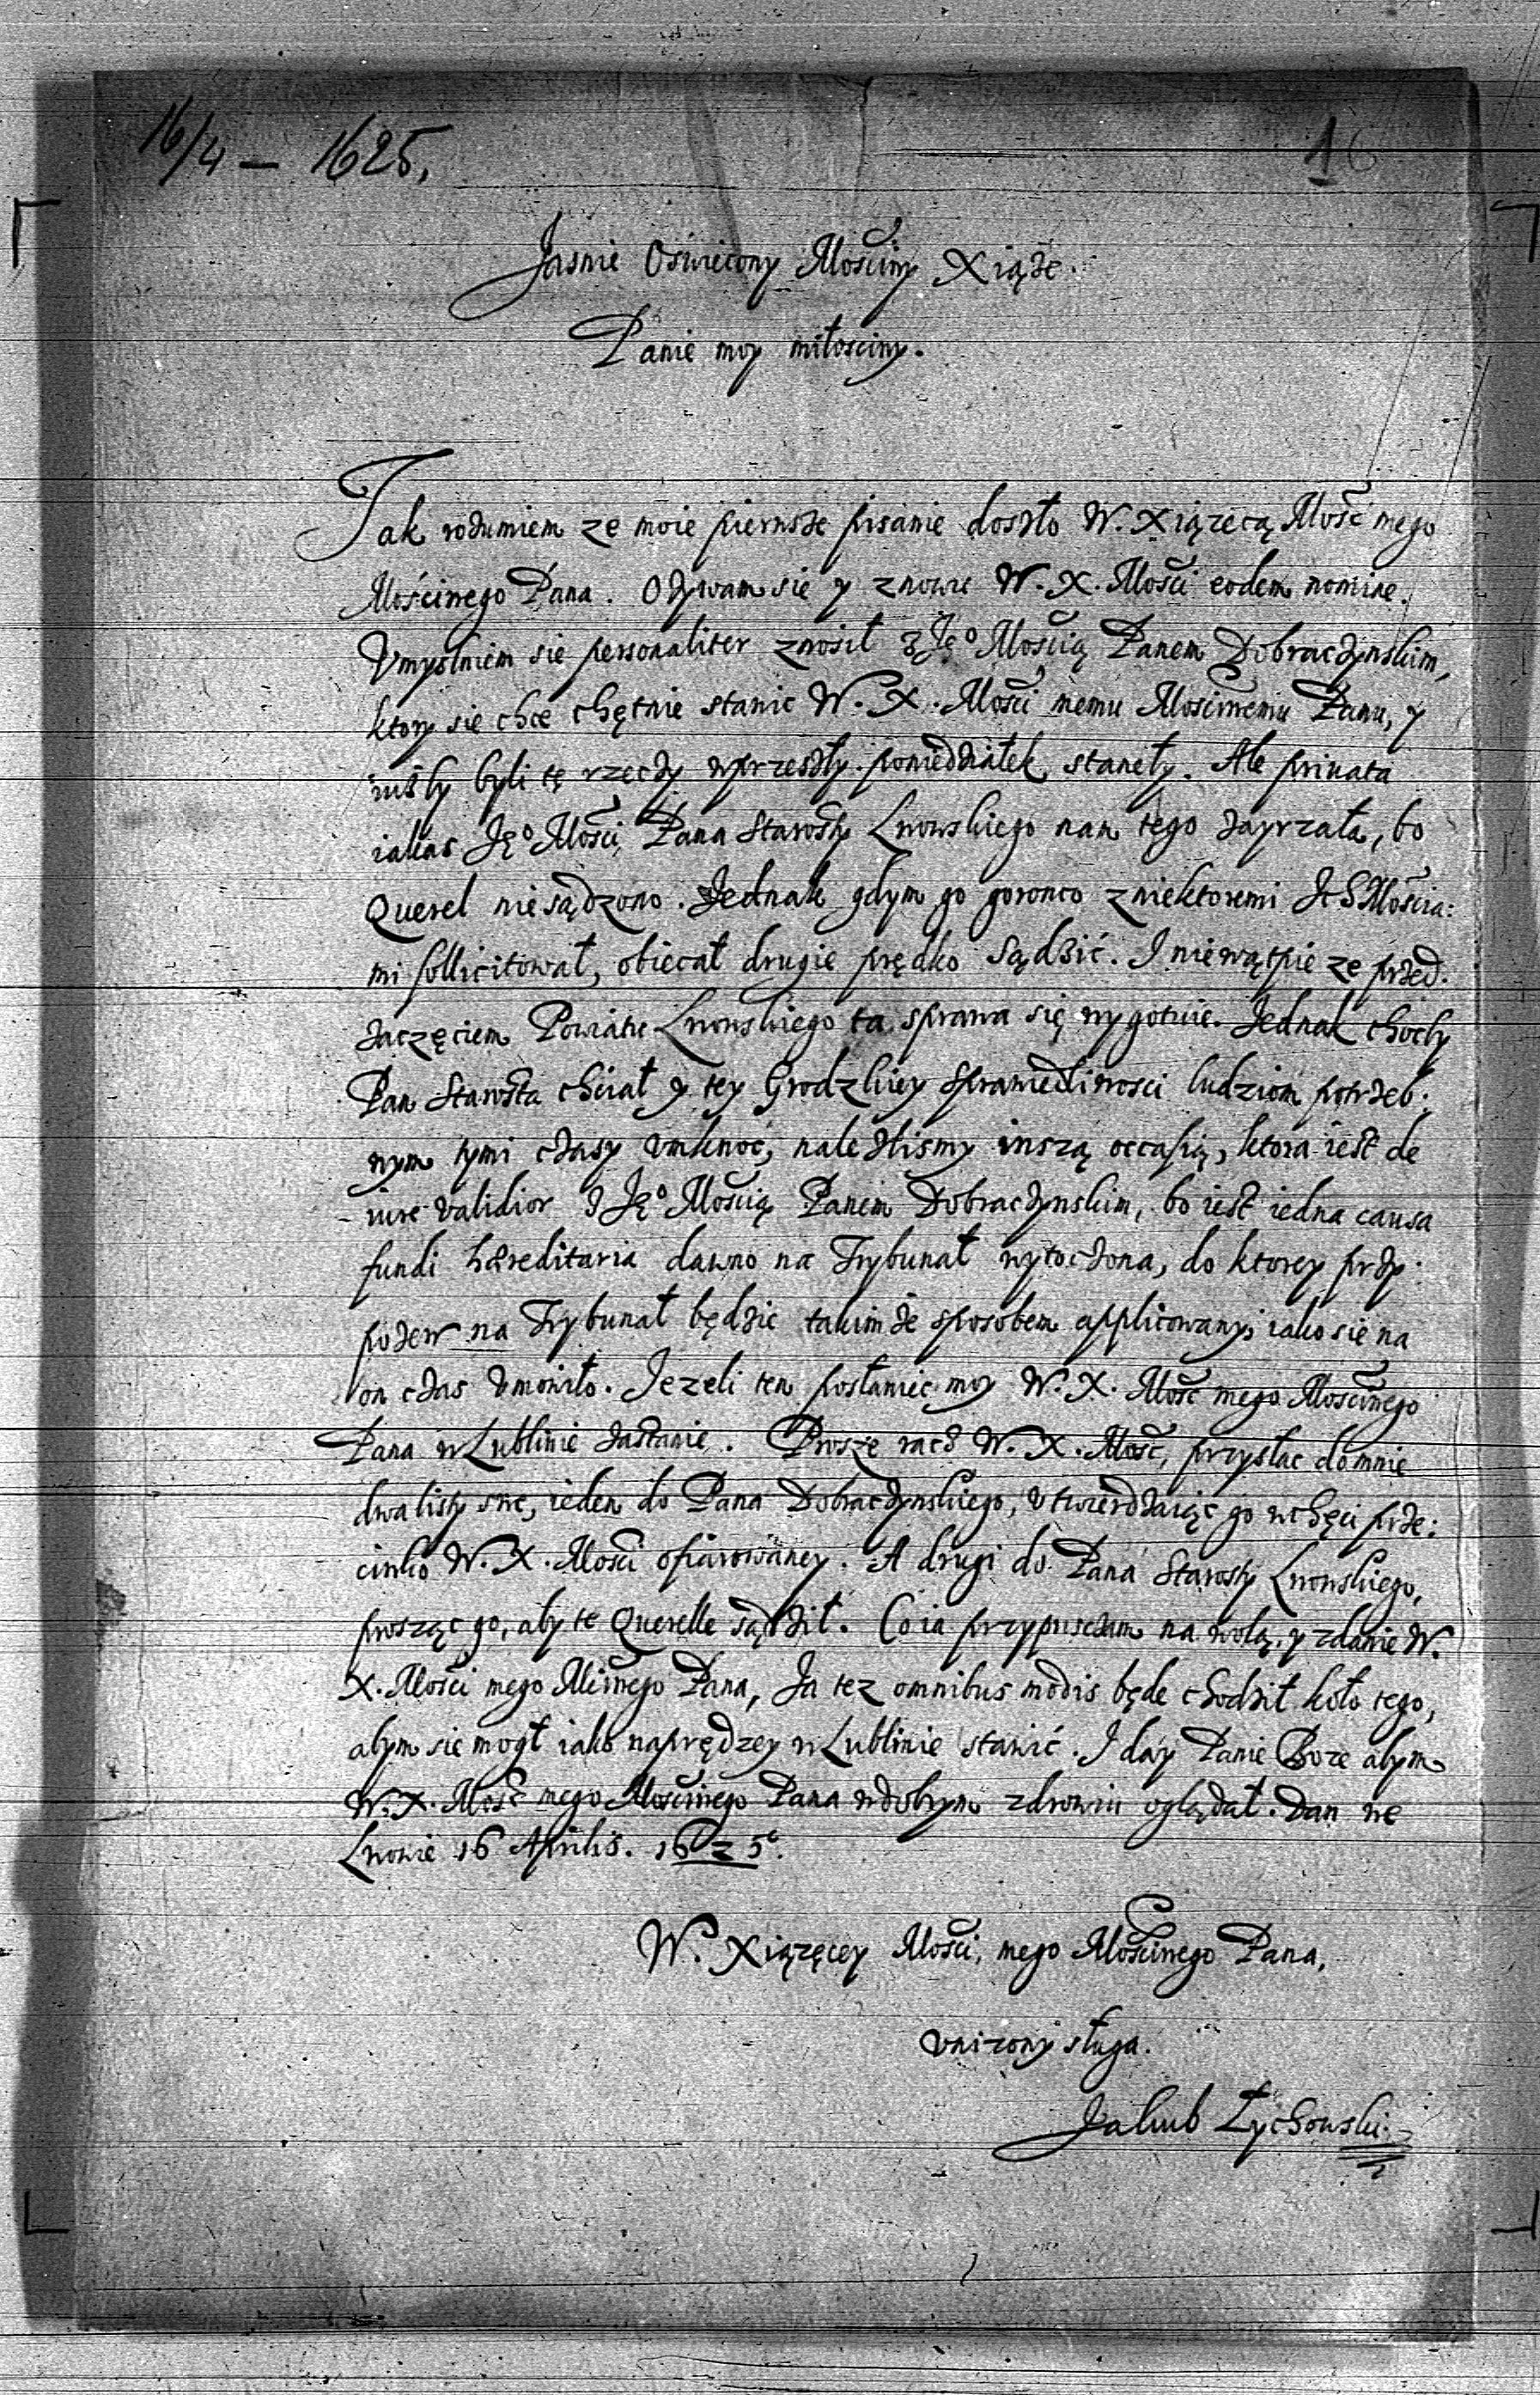 16/4 — 1625.
16
Jasnie Oświecony Mościwy Xiąże.
Panie moy miłosciwy.
Tak rozumiem ze moie pierwsze pisanie doszło W. Xiązecą Mość mego
Mościwego Pana. Ozywam sie y znowu W. X. Mości eodem nomine.
Vmyslniem sie personaliter znosił z Je° Mością Panem Dobraczynskim,
ktory sie chce chętnie stawic W. X. Mości memu Mościwemu Panu, y
iusby byli tę rzeczy wprzeszły poniedziałek stanęły. Ale priuata
iakas Je° Mości Pana Starosty Lwowskiego nam tego zayrzała, bo
Querel nie sądzono. Jednak gdym go goronco z niektoremi Mościa:
mi sollicitował, obiecał drugie prędko sądzić. I nie wątpie ze przed
zaczęciem Powiatu Lwowskiego ta sprawa się wygotuie. Jednak chocby
Pan Starosta chciał y tey Grodzkiey sprawiedliwosci ludziom potrzeb:
nym tymi czasy vmknoć, nalezlismy inszą occasią, ktora iest de
iure validior z Je° Mością Panem Dobraczynskim, bo iest iedna causa
fundi hæreditaria dawno na Trybunał wytoczona, do ktorey przy:
pozew na Trybunał będzie takimze sposobem applicowany, iako sie na
on czas vmowiło. Jezeli ten posłaniec moy W. X. Mość mego Mościwego
Pana w Lublinie zastanie. Proszę racz W. X. Mość, przysłac do mnie
dwa listy swe, ieden do Pana Dobraczynskiego, vtwierdzaiąc go w chęci prze:
ciwko W. X. Mości ofiarowaney. A drugi do Pana Starosty Lwowskiego,
prosząc go, aby te Querelle sądził. Co ia przypuszczam na wolą y zdanie W.
X. Mości mego Mciwego Pana, Ja tez omnibus modis będe chodził koło tego,
abym sie mogł iako naprędzey w Lublinie stawić. I day Panie Boze abym
W. X. Mość mego Mościwego Pana w dobrym zdrowiu oglądał. Dan we
Lwowie 16 Aprilis. 1625.
W. Xiązęcey Mości, mego Mościwego Pana,
vnizony sługa.
Jakub Łychowski.